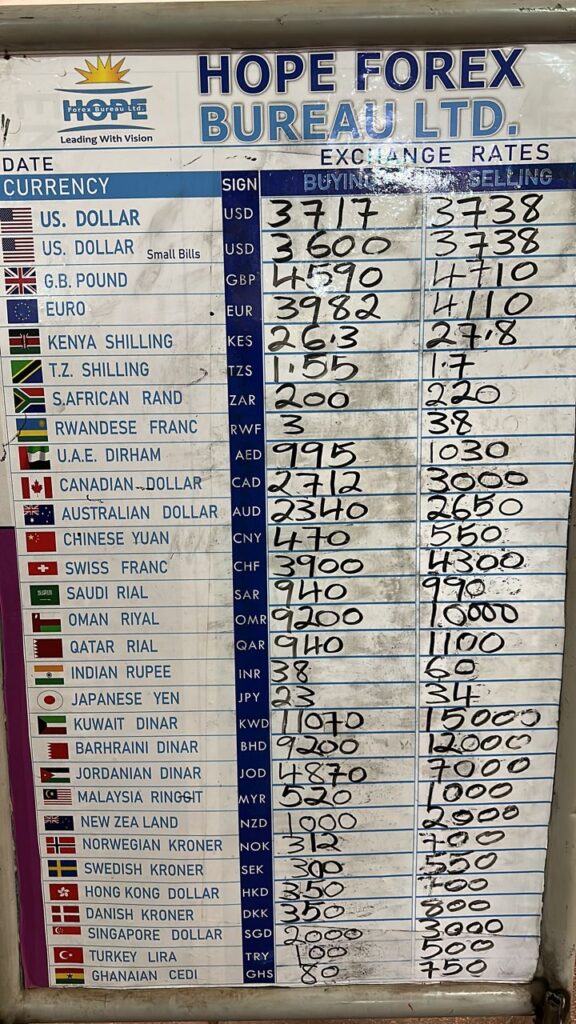 HOPE
Forex Bureau Ltd.
Leading With Vision
HOPE FOREX
BUREAU LTD.
DATE EXCHANGE RATES
CURRENCY SIGN BUYING SELLING
US. DOLLAR USD 3717 3738
US. DOLLAR Small Bills USD 3600 3738
G.B. POUND GBP 4590 4710
EURO EUR 3982 4110
KENYA SHILLING KES 26.3 27.8
T.Z. SHILLING TZS 1.55 1.7
S.AFRICAN RAND ZAR 200 220
RWANDESE FRANC RWF 3 3.8
U.A.E. DIRHAM AED 995 1030
CANADIAN DOLLAR CAD 2712 3000
AUSTRALIAN DOLLAR AUD 2340 2650
CHINESE YUAN CNY 470 550
SWISS FRANC CHF 3900 4300
SAUDI RIAL SAR 940 990
OMAN RIYAL OMR 9200 10000
QATAR RIAL QAR 940 1100
INDIAN RUPEE INR 38 60
JAPANESE YEN JPY 23 34
KUWAIT DINAR KWD 11070 15000
BARHRAINI DINAR BHD 9200 12000
JORDANIAN DINAR JOD 4870 7000
MALAYSIA RINGGIT MYR 520 1000
NEW ZEALAND NZD 1000 2000
NORWEGIAN KRONER NOK 312 700
SWEDISH KRONER SEK 300 550
HONG KONG DOLLAR HKD 350 700
DANISH KRONER DKK 350 800
SINGAPORE DOLLAR SGD 2000 3000
TURKEY LIRA TRY 100 500
GHANAIAN CEDI GHS 80 750